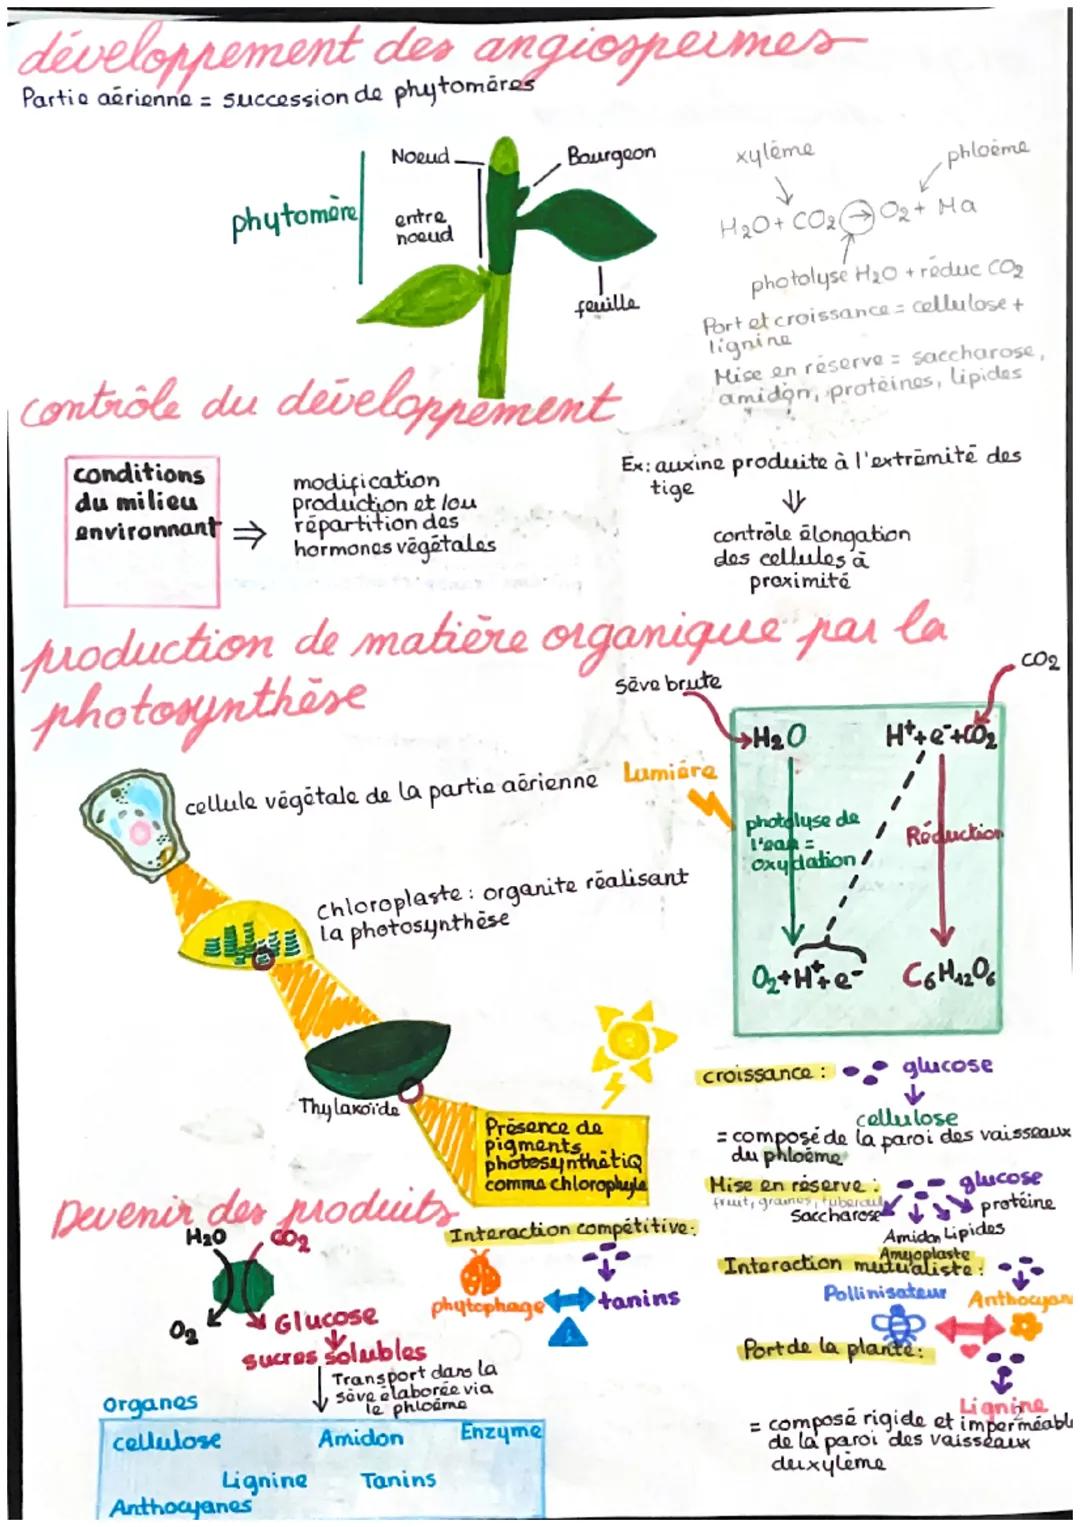 développement des angiospermes
Partie aérienne = succession de phytomères
Noeud
Bourgeon
phytomère
entre
noeud
feuille
xylème
phloème
H2O + CO2 → O2 + Ma
photolyse H2O + réduc CO2
Port et croissance = cellulose +
lignine
Mise en réserve = saccharose,
amidon, protéines, lipides
contrôle du développement
conditions
du milieu
environnant
⇒
modification
production et/ou
répartition des
hormones végétales
Ex: auxine produite à l'extrémité des
tige
contrôle élongation
des cellules à
proximité
production de matière organique par la
photosynthèse
Sève brute
CO2
H2O
H+ + e- + CO2
Lumière
photolyse de
l'eau =
oxydation
Réduction
O2 + H+ + e-
C6H12O6
cellule végétale de la partie aérienne
chloroplaste : organite réalisant
la photosynthèse
Thylakoïde
Présence de
pigments
photosynthétiq
comme chlorophyle
croissance :
glucose
cellulose
= composé de la paroi des vaisseaux
du phloème
Mise en réserve :
glucose
fruit, graines, tubercul
Saccharose
protéine
Amidon Lipides
Amyoplaste
Interaction mutualiste :
Pollinisateur
Anthocyan
Port de la plante :
Lignine
2
= composé rigide et imperméabl
de la paroi des vaisseaux
du xylème
Devenir des produits
H2O
CO2
O2
Glucose
sucres solubles
Transport dans la
sève élaborée via
le phloème
Interaction compétitive :
phytophage
tanins
organes
cellulose
Amidon
Enzyme
Lignine
Tanins
Anthocyanes